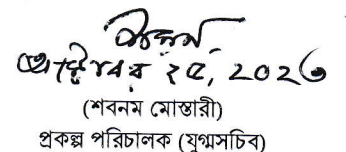 অক্টোবর ২৫, ২০২৩
(শবনম মোস্তারী)
প্রকল্প পরিচালক (যুগ্মসচিব)